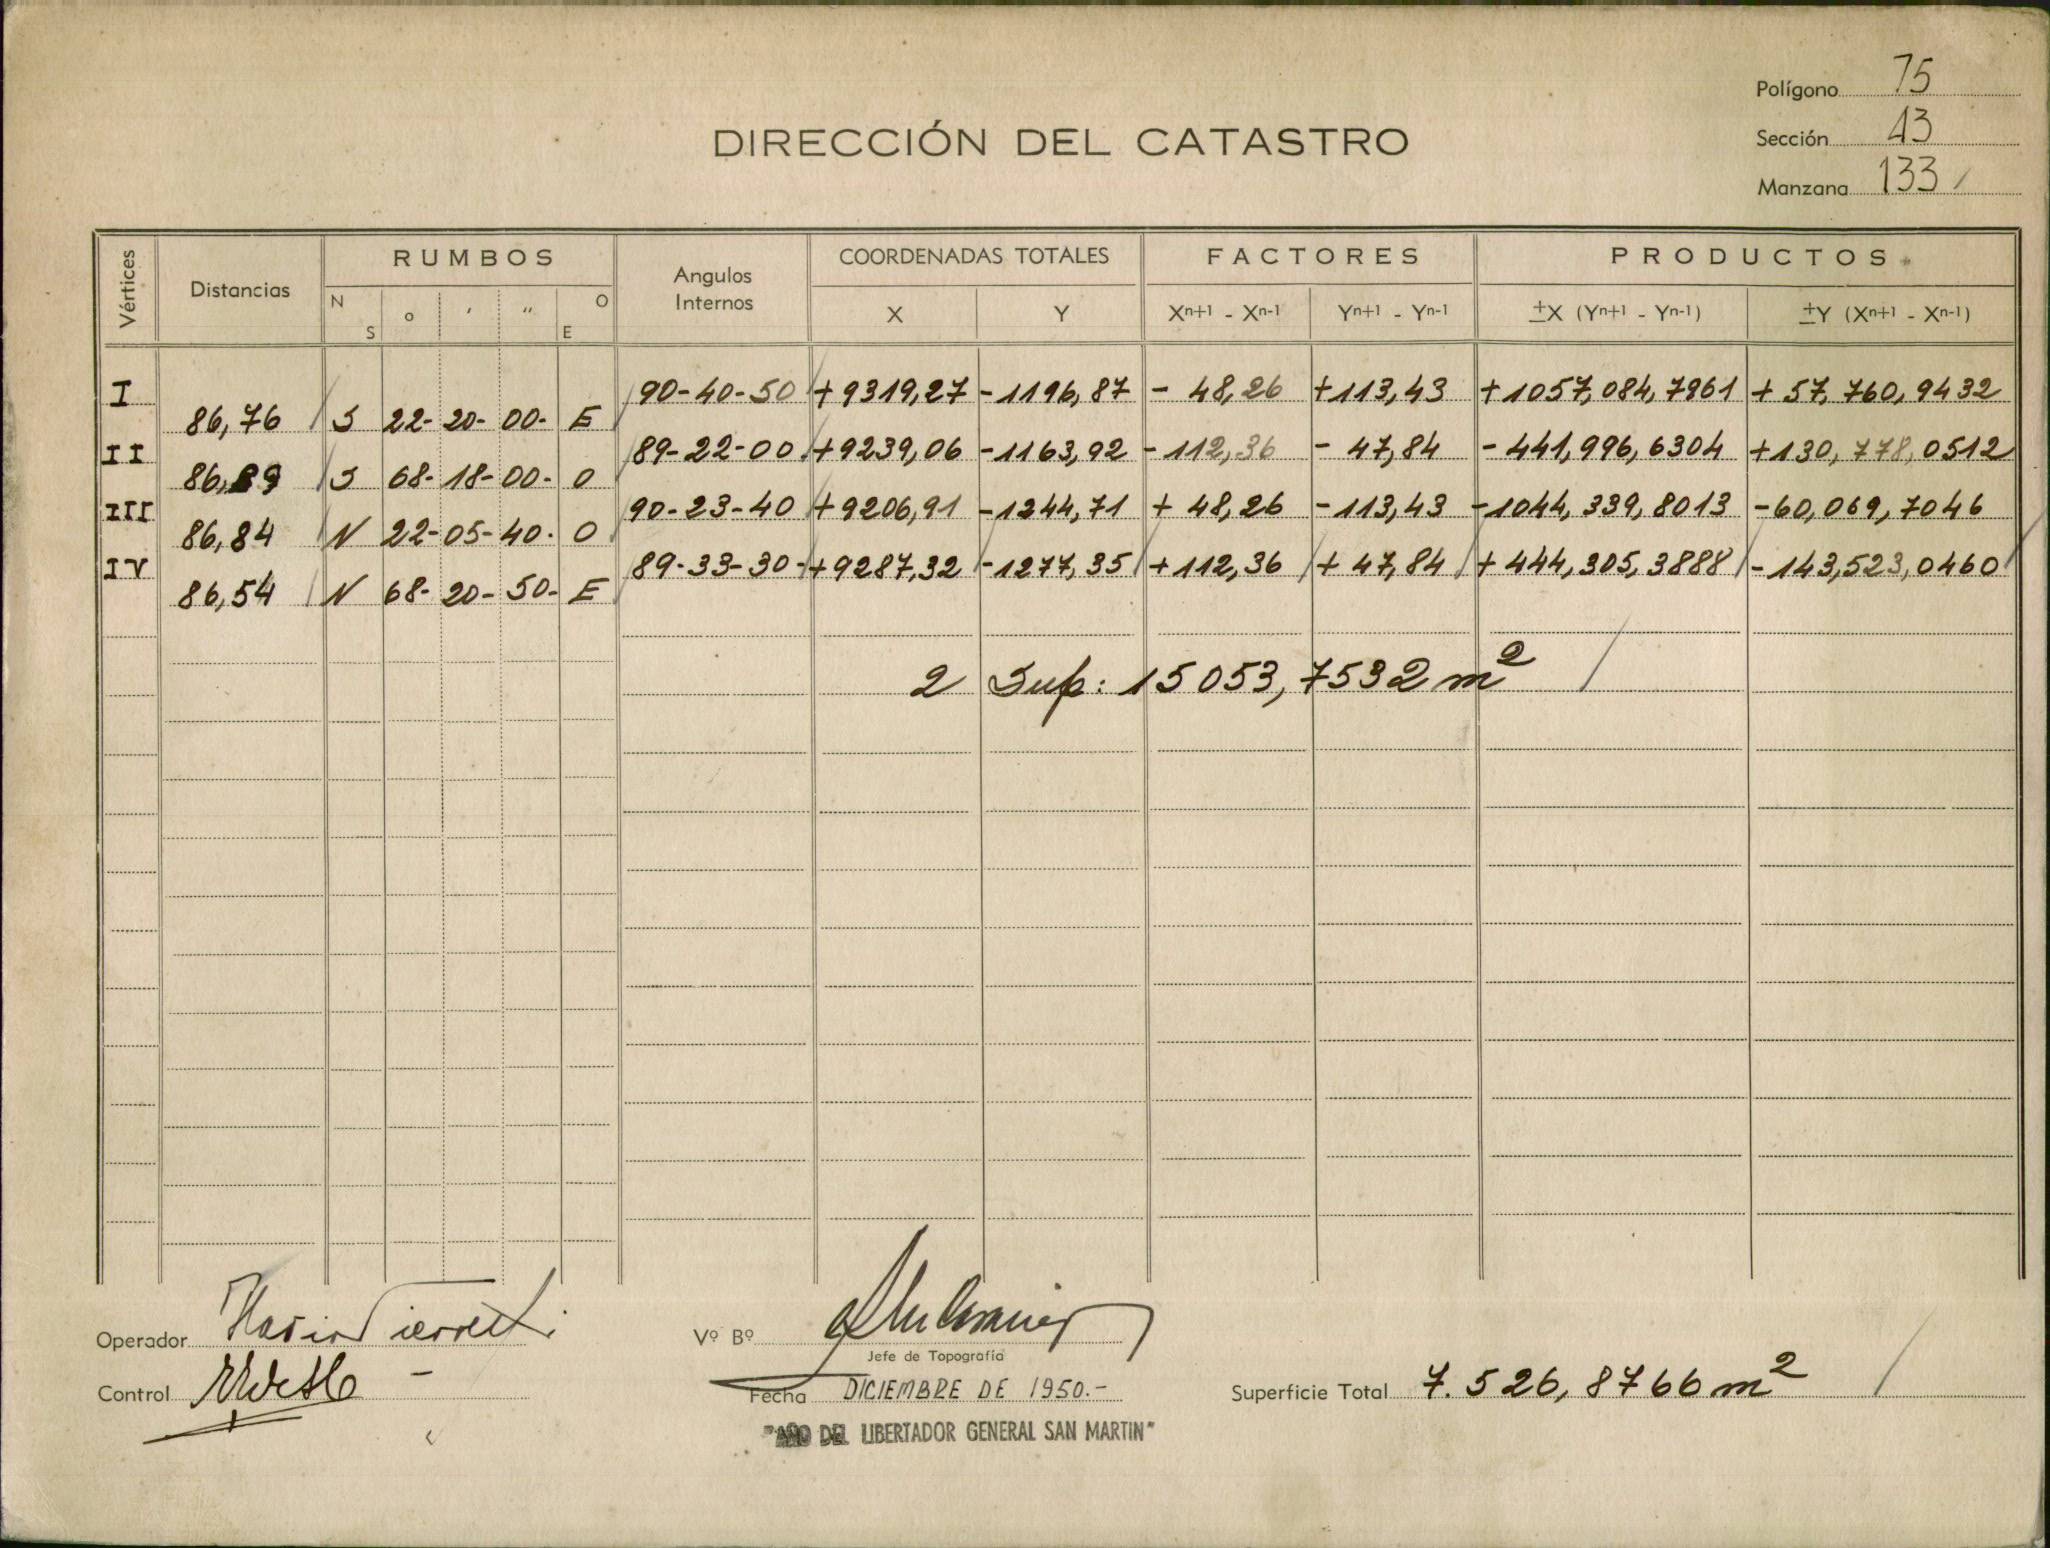 Polígono 75
Sección 13
Manzana 133
DIRECCIÓN DEL CATASTRO
Vértices Distancias RUMBOS Angulos Internos COORDENADAS TOTALES FACTORES PRODUCTOS
N S o ' " O E X Y Xn+1 - Xn-1 Yn+1 - Yn-1 ±X (Yn+1 - Yn-1) ±Y (Xn+1 - Xn-1)
I 90-40-50 +9319,27 -1196,87 - 48,26 +113,43 +1057,084,7961 + 57,760,9462
86,76 S 22- 20- 00- E
II 89-22-00 +9239,06 -1163,92 -112,36 - 47,84 -441,996,6304 +130,778,0512
86,89 S 68- 18- 00- O
III 90-23-40 +9206,91 -1244,71 + 48,26 -113,43 -1044,339,8013 -60,069,7046
86,84 N 22- 05- 40- O
IV 89-33-30- +9287,32 -1277,35 +112,36 + 47,84 +444,305,3888 -143,523,0460
86,54 N 68- 20- 50- E
2 Sup: 15053,7532 m²
Operador
Vº Bº
Jefe de Topografía
Control
Fecha DICIEMBRE DE 1950.-
Superficie Total 7.526,8766 m²
"AÑO DEL LIBERTADOR GENERAL SAN MARTIN"